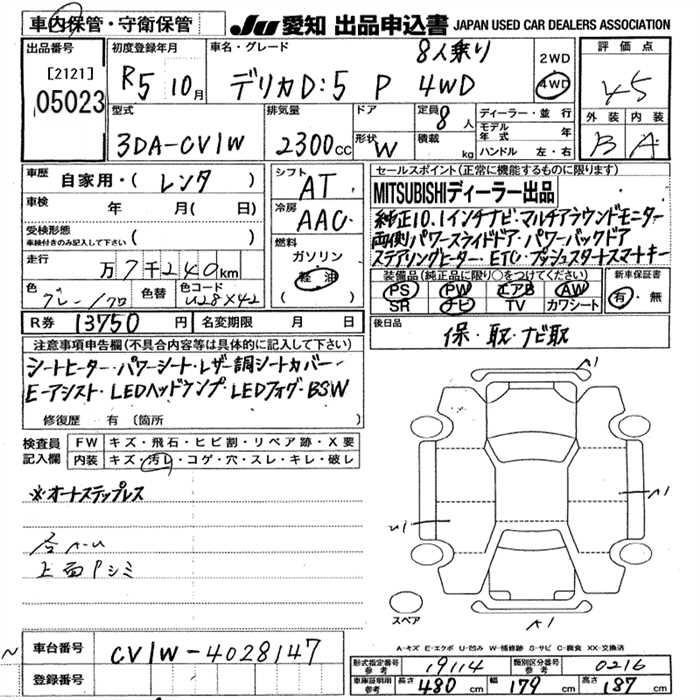 車内保管・守衛保管
JU 愛知 出品申込書 JAPAN USED CAR DEALERS ASSOCIATION
出品番号
[2121]
05023
初度登録年月
R5 10月
車名・グレード
8人乗り
デリカD:5 P 4WD
2WD
4WD
評価点
4.5
外装 内装
B A
型式
3DA-CV1W
排気量
2300cc
ドア
形状 W
定員 8人
積載 kg
ディーラー・並行
モデル年式 年
ハンドル 左・右
車歴 自家用・(レンタ)
車検 年 月( 日)
受検形態
車検付きのみ記入して下さい ( )
走行 万7千240km
色 グレー/クロ 色替 色コード U28X42
シフト AT
冷房 AAC
燃料
ガソリン
軽油
セールスポイント(正常に機能するものに限ります)
MITSUBISHIディーラー出品
純正10.1インチナビ・マルチアラウンドモニター
両側パワースライドドア・パワーバックドア
ステアリングヒーター・ETC・プッシュスタートスマートキー
装備品(純正品に限り○をつけてください)
PS PW エアB AW
SR ナビ TV カワシート
新車保証書
有・無
R券 13750円 名変期限 月 日
後日品
保・取・ナビ取
注意事項申告欄(不具合内容等は具体的に記入して下さい)
シートヒーター・パワーシート・レザー調シートカバー・
E-アシスト・LEDヘッドランプ・LEDフォグ・BSW
修復歴 有(箇所 )
検査員記入欄
FW キズ・飛石・ヒビ割・リペア跡・X要
内装 キズ・汚レ・コゲ・穴・スレ・キレ・破レ
※オートステップレス
上面Pシミ
A1
A1
U1
A1
スペア
A-キズ E-エクボ U-凹み W-補修跡 S-サビ C-腐食 XX-交換済
車台番号 CV1W-4028147
登録番号
形式指定番号 参考 19114 類別区分番号 参考 0216
車庫証明用 参考 長さ 480cm 幅 179cm 高さ 187cm